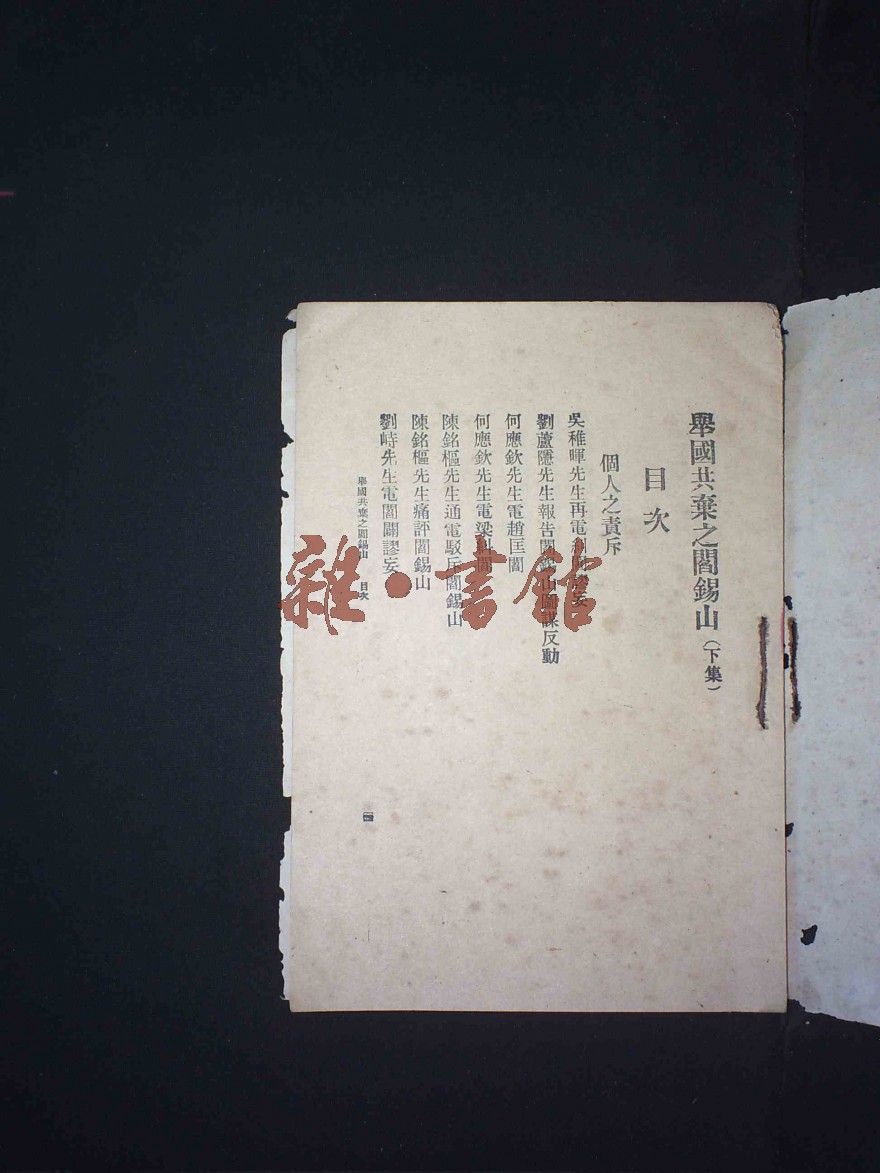 舉國共棄之閻錫山(下集)
目次
個人之責斥
吳稚暉先生再電
劉蘆隱先生報告閻錫山圖謀反動
何應欽先生電趙匡閻
何應欽先生電梁糾閻
陳銘樞先生通電駁斥閻錫山
陳銘樞先生痛評閻錫山
劉峙先生電閻闢謬妄
舉國共棄之閻錫山 目次
雜·書館